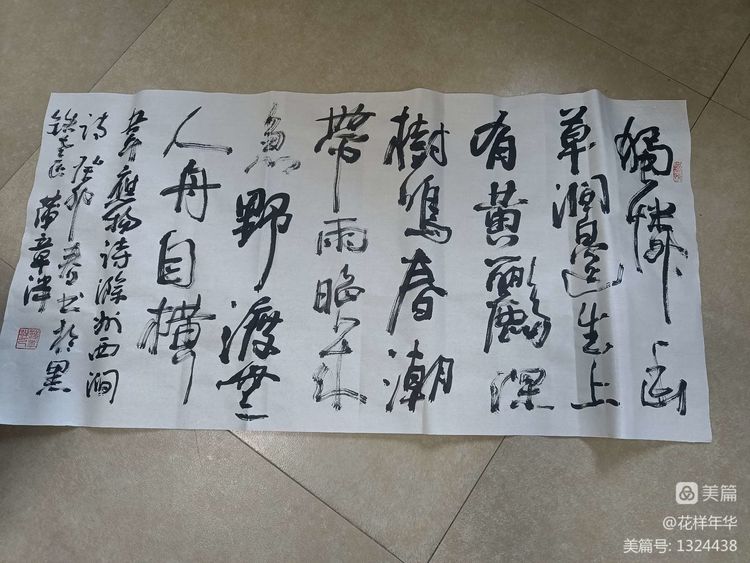 獨憐幽
草澗邊生上
有黃鸝深
樹鳴春潮
帶雨晚來
急野渡無
人舟自橫
韋應物詩滁州西澗
詩癸卯春書於黑
章
美篇
@花样年华
美篇号: 1324438